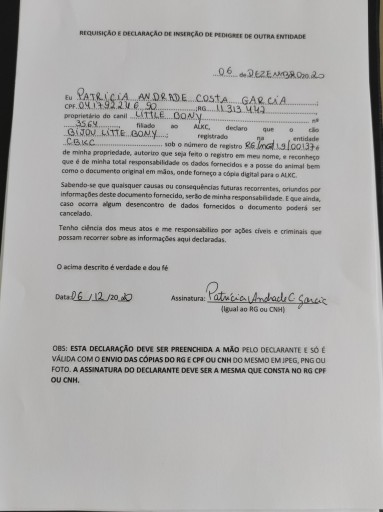 REQUISIÇÃO E DECLARAÇÃO DE INSERÇÃO DE PEDIGREE DE OUTRA ENTIDADE
06 de DEZEMBRO 2020
Eu PATRÍCIA ANDRADE COSTA GARCIA,
CPF 041792246 90, RG 11.313 442,
proprietário do canil LITTLE BONY nº
3564 filiado ao ALKC, declaro que o cão
BIJOU LITTE BONY, registrado na entidade
CBKC sob o número de registro
de minha propriedade, autorizo que seja feito o registro em meu nome, e reconheço
que é de minha total responsabilidade os dados fornecidos e a posse do animal bem
como o documento original em mãos, onde forneço a cópia digital para o ALKC.
Sabendo-se que quaisquer causas ou consequências futuras recorrentes, oriundos por
informações deste documento fornecido, serão de minha responsabilidade. E que ainda,
caso ocorra algum desencontro de dados fornecidos o documento poderá ser
cancelado.
Tenho ciência dos meus atos e me responsabilizo por ações cíveis e criminais que
possam recorrer sobre as informações aqui declaradas.
O acima descrito é verdade e dou fé
Data: 06/12/2020 Assinatura: Patrícia Andrade C Garcia
(Igual ao RG ou CNH)
OBS: ESTA DECLARAÇÃO DEVE SER PREENCHIDA A MÃO PELO DECLARANTE E SÓ É
VÁLIDA COM O ENVIO DAS CÓPIAS DO RG E CPF OU CNH DO MESMO EM JPEG, PNG OU
FOTO. A ASSINATURA DO DECLARANTE DEVE SER A MESMA QUE CONSTA NO RG CPF
OU CNH.